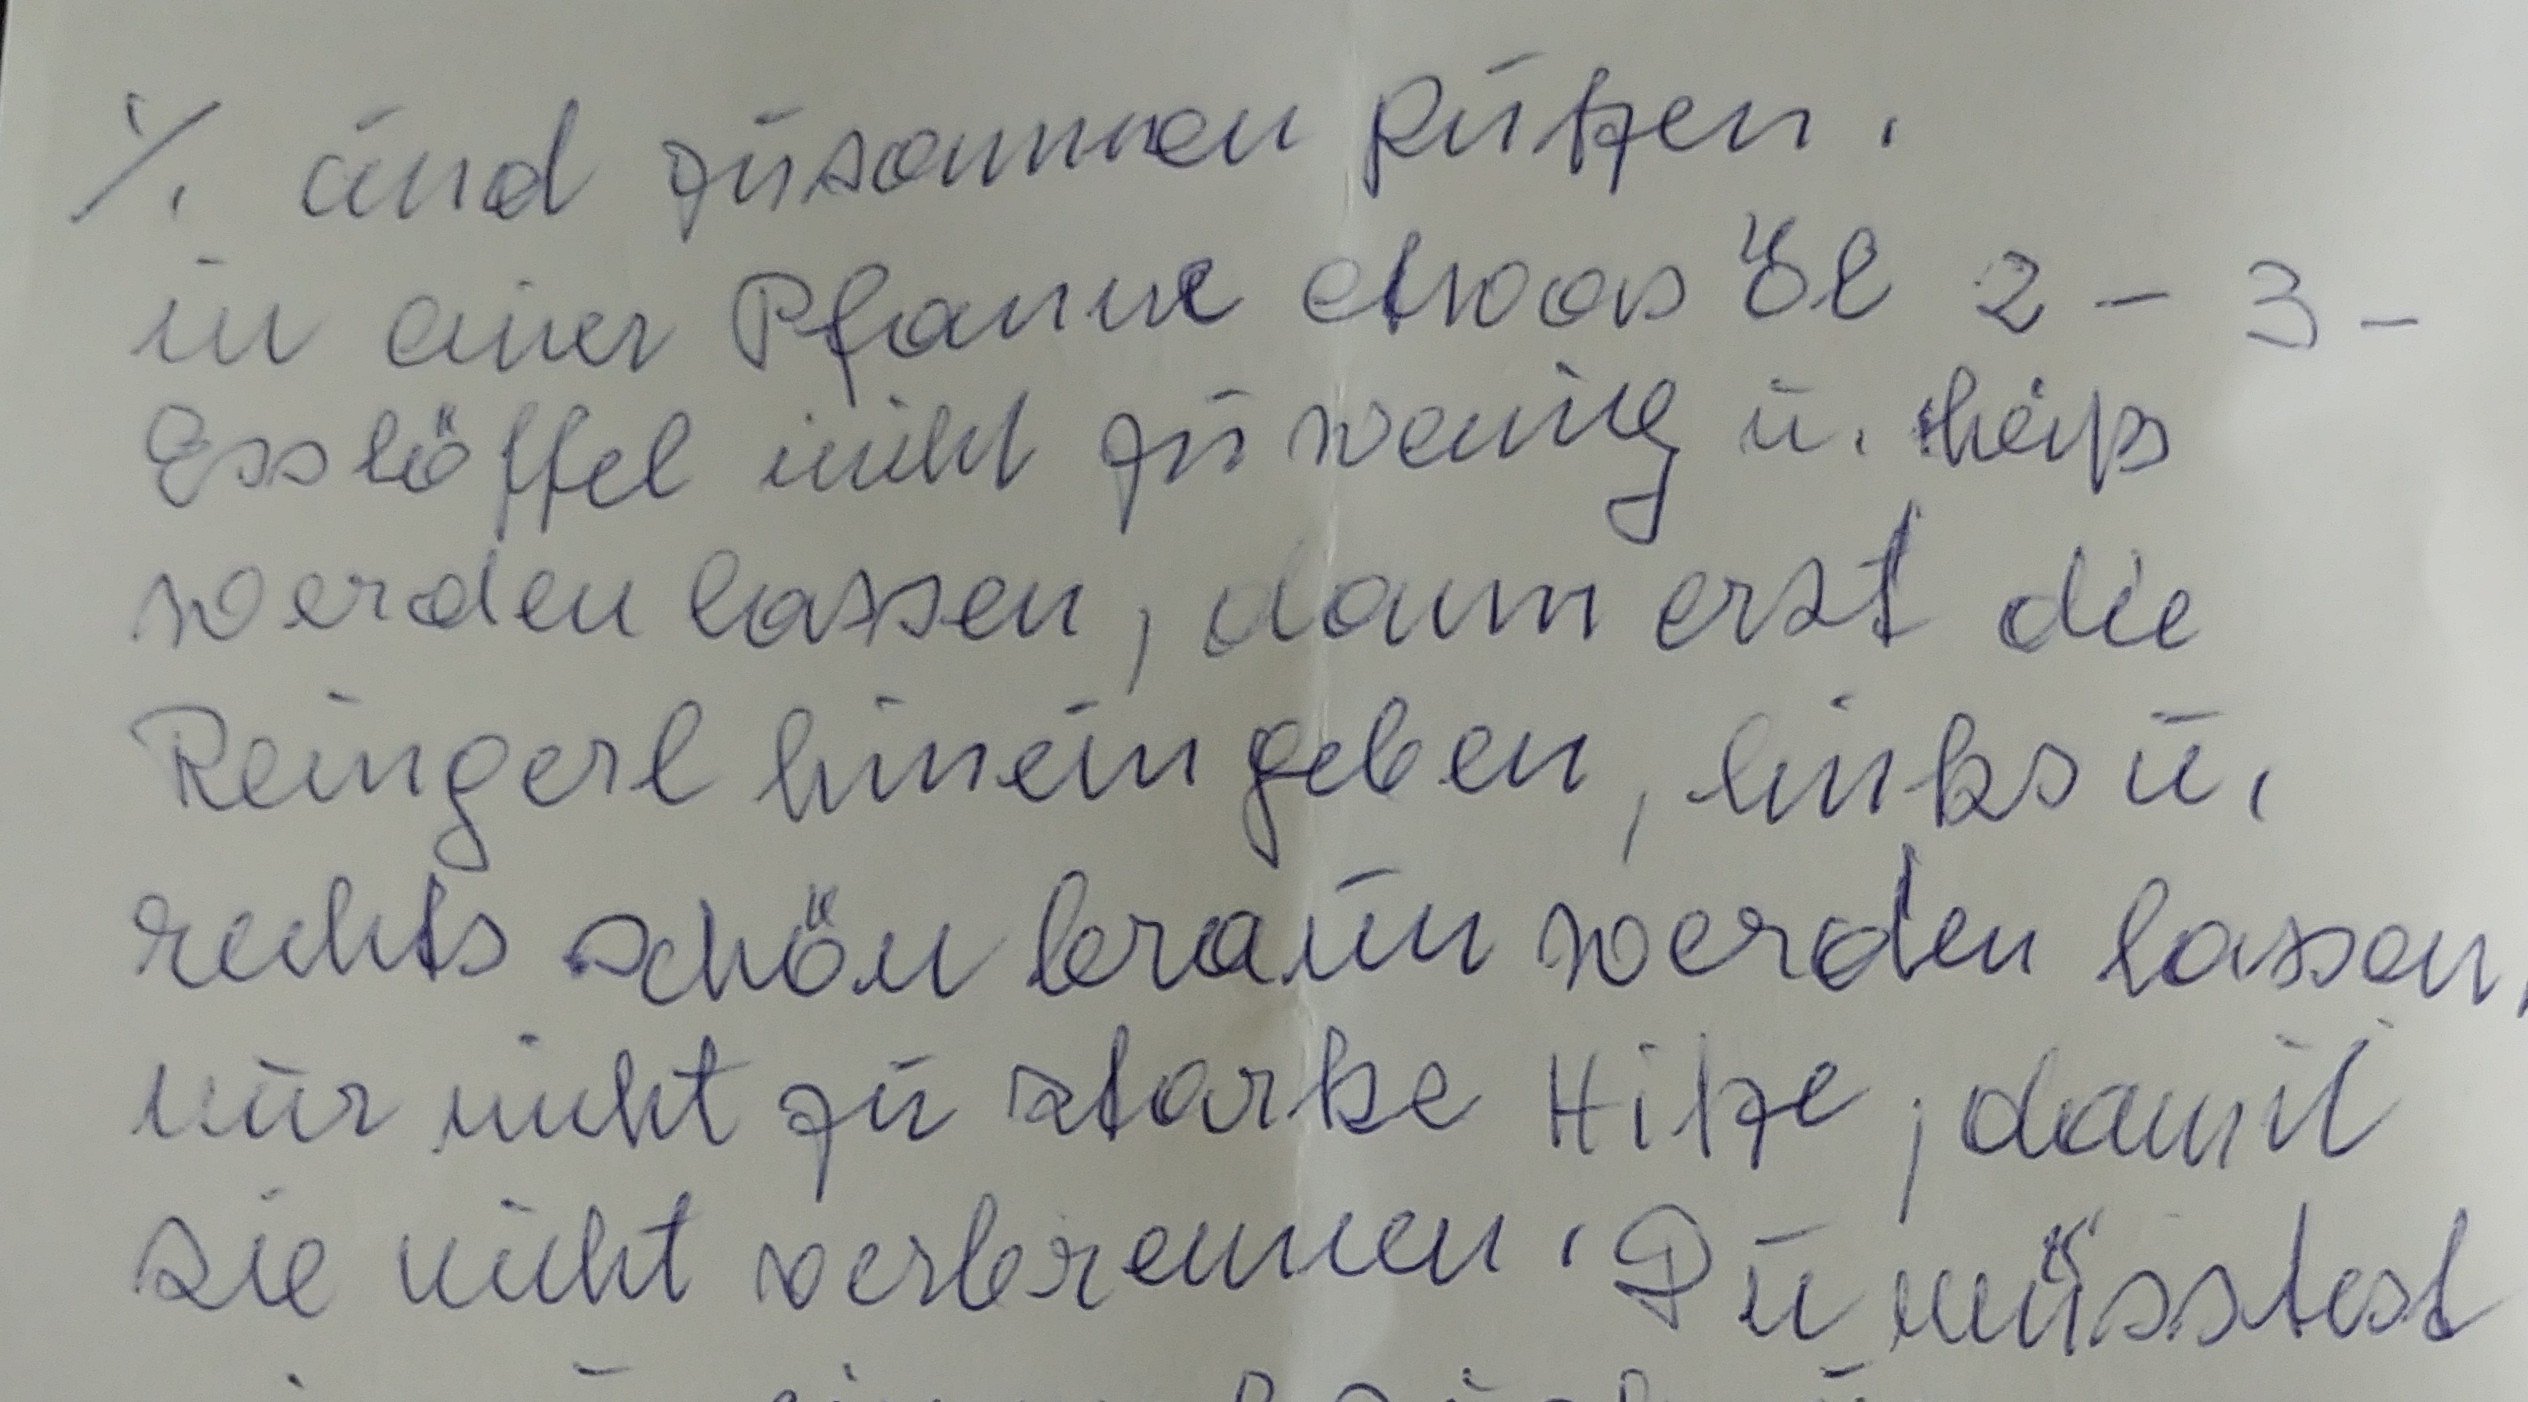 ./. und zusammen
in einer Pfanne etwas Öl 2 - 3 -
Esslöffel nicht zu wenig u. heiß
werden lassen, dann erst die
Reingerl hineingeben, links u.
rechts schön braun werden lassen,
nur nicht zu starke Hitze, damit
sie nicht verbrennen. Du müsstest